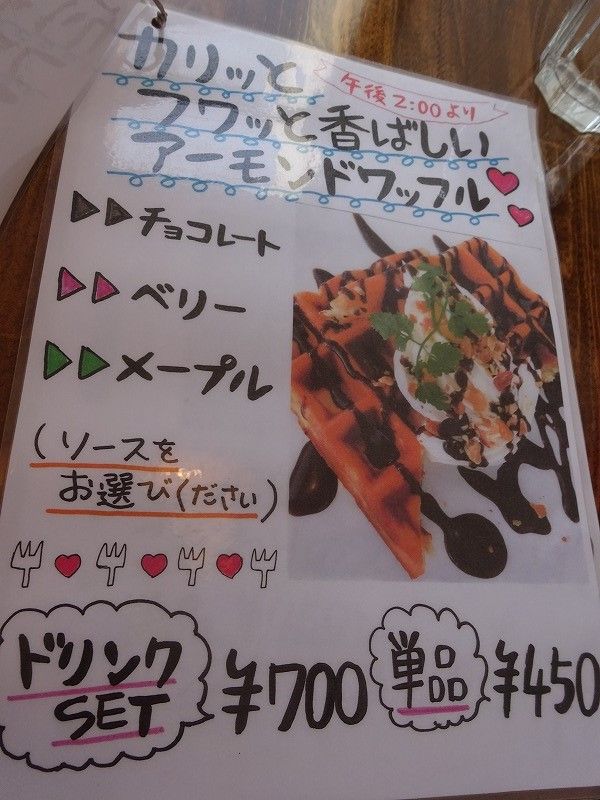 カリッと
午後2:00より
フワッと香ばしい
アーモンドワッフル
チョコレート
ベリー
メープル
(ソースを
お選びください)
ドリンク
SET
¥700
単品
¥450